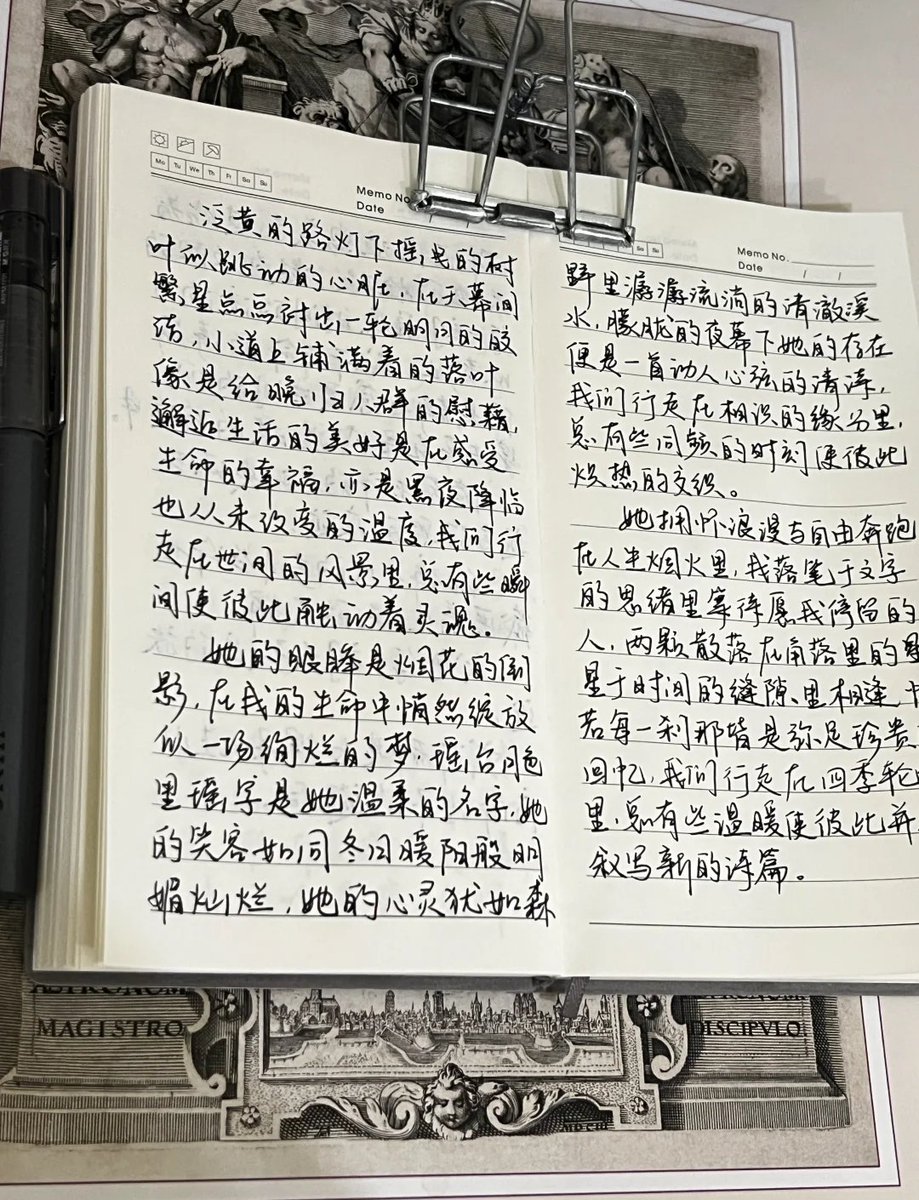 Mo Tu We Th Fr Sa Su
Memo No.
Date
泛黄的路灯下摇曳的树
叶似跳动的心脏，在天幕间
繁星点点衬出一轮明月的皎
洁，小道上铺满着的落叶
像是给晚归人群的慰藉，
邂逅生活的美好是在感受
生命的幸福，亦是黑夜降临
也从未改变的温度，我们行
走在世间的风景里，总有些瞬
间使彼此触动着灵魂。
她的眼眸是烟花的倒
影，在我的生命中悄然绽放
似一场绚烂的梦，瑶台月色
里瑶字是她温柔的名字，她
的笑容如同冬日暖阳般明
媚灿烂，她的心灵犹如森
Sa Su
Memo No.
Date / /
野里潺潺流淌的清澈溪
水，朦胧的夜幕下她的存在
便是一首动人心弦的清涛，
我们行走在相识的缘分里，
总有些同频的时刻使彼此
炽热的交织。
她拥怀浪漫与自由奔跑
在人生烟火里，我落笔于文字
的思绪里等待愿我停留的
人，两颗散落在角落里的
星于时间的缝隙里相逢，
若每一刹那皆是弥足珍贵
回忆，我们行走在四季轮
里，总有些温暖使彼此并
叙写新的诗篇。
ASTRONOM
MAGISTRO
DISCIPVLO